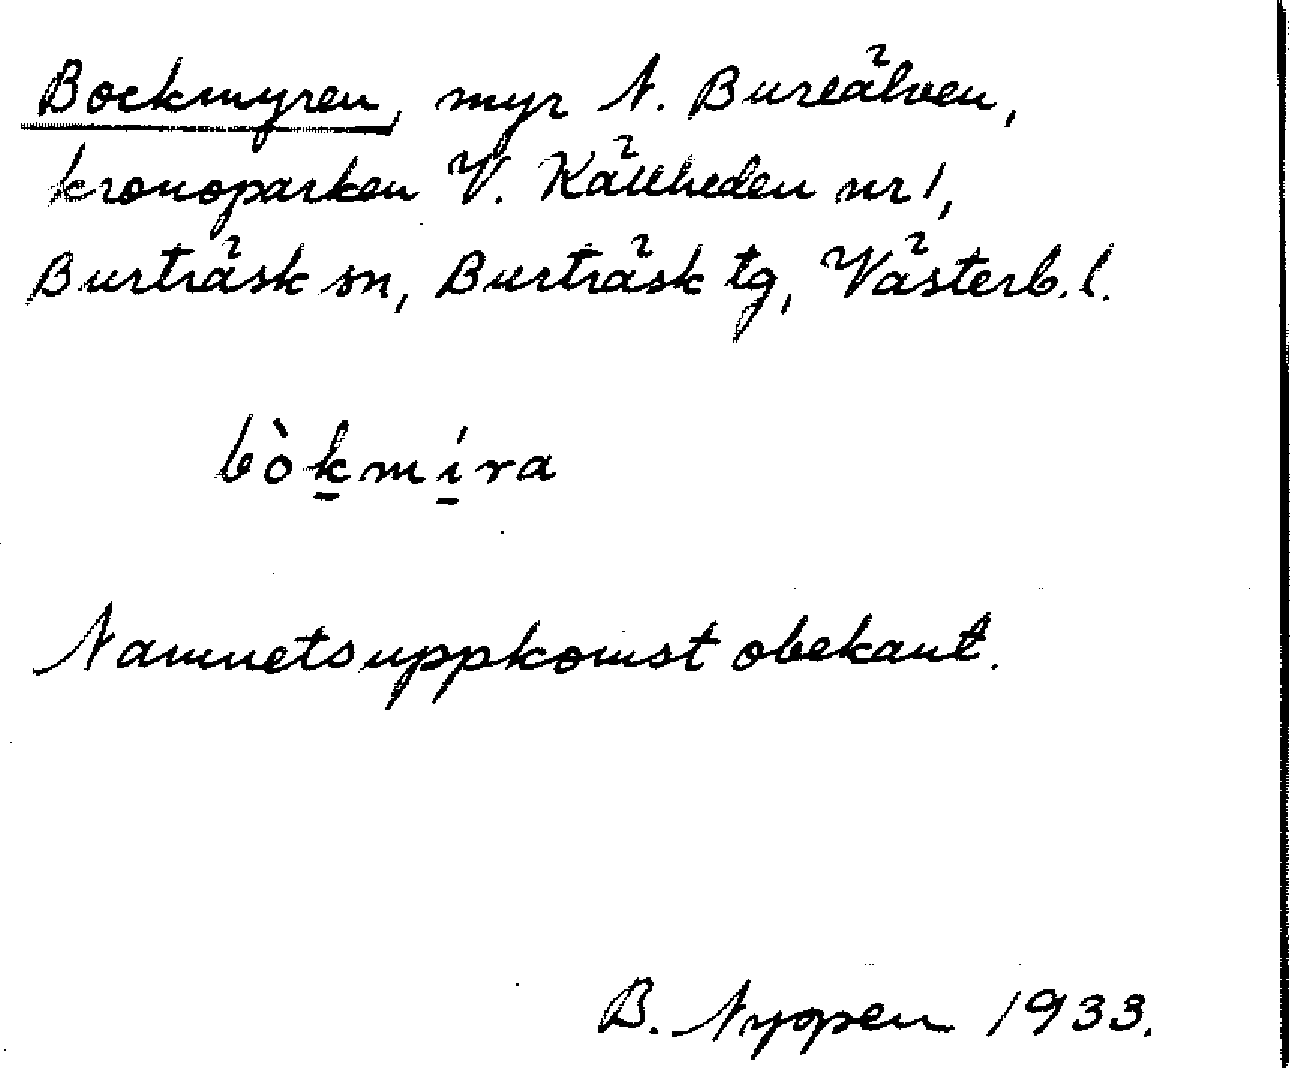 Bockmyren, myr N. Bureälven,
kronoparken V. Källheden nr 1,
Burträsk sn, Burträsk tg, Västerb. l.
bòk̲mí̲ra
Namnets uppkomst obekant.
B. Nyopen 1933.